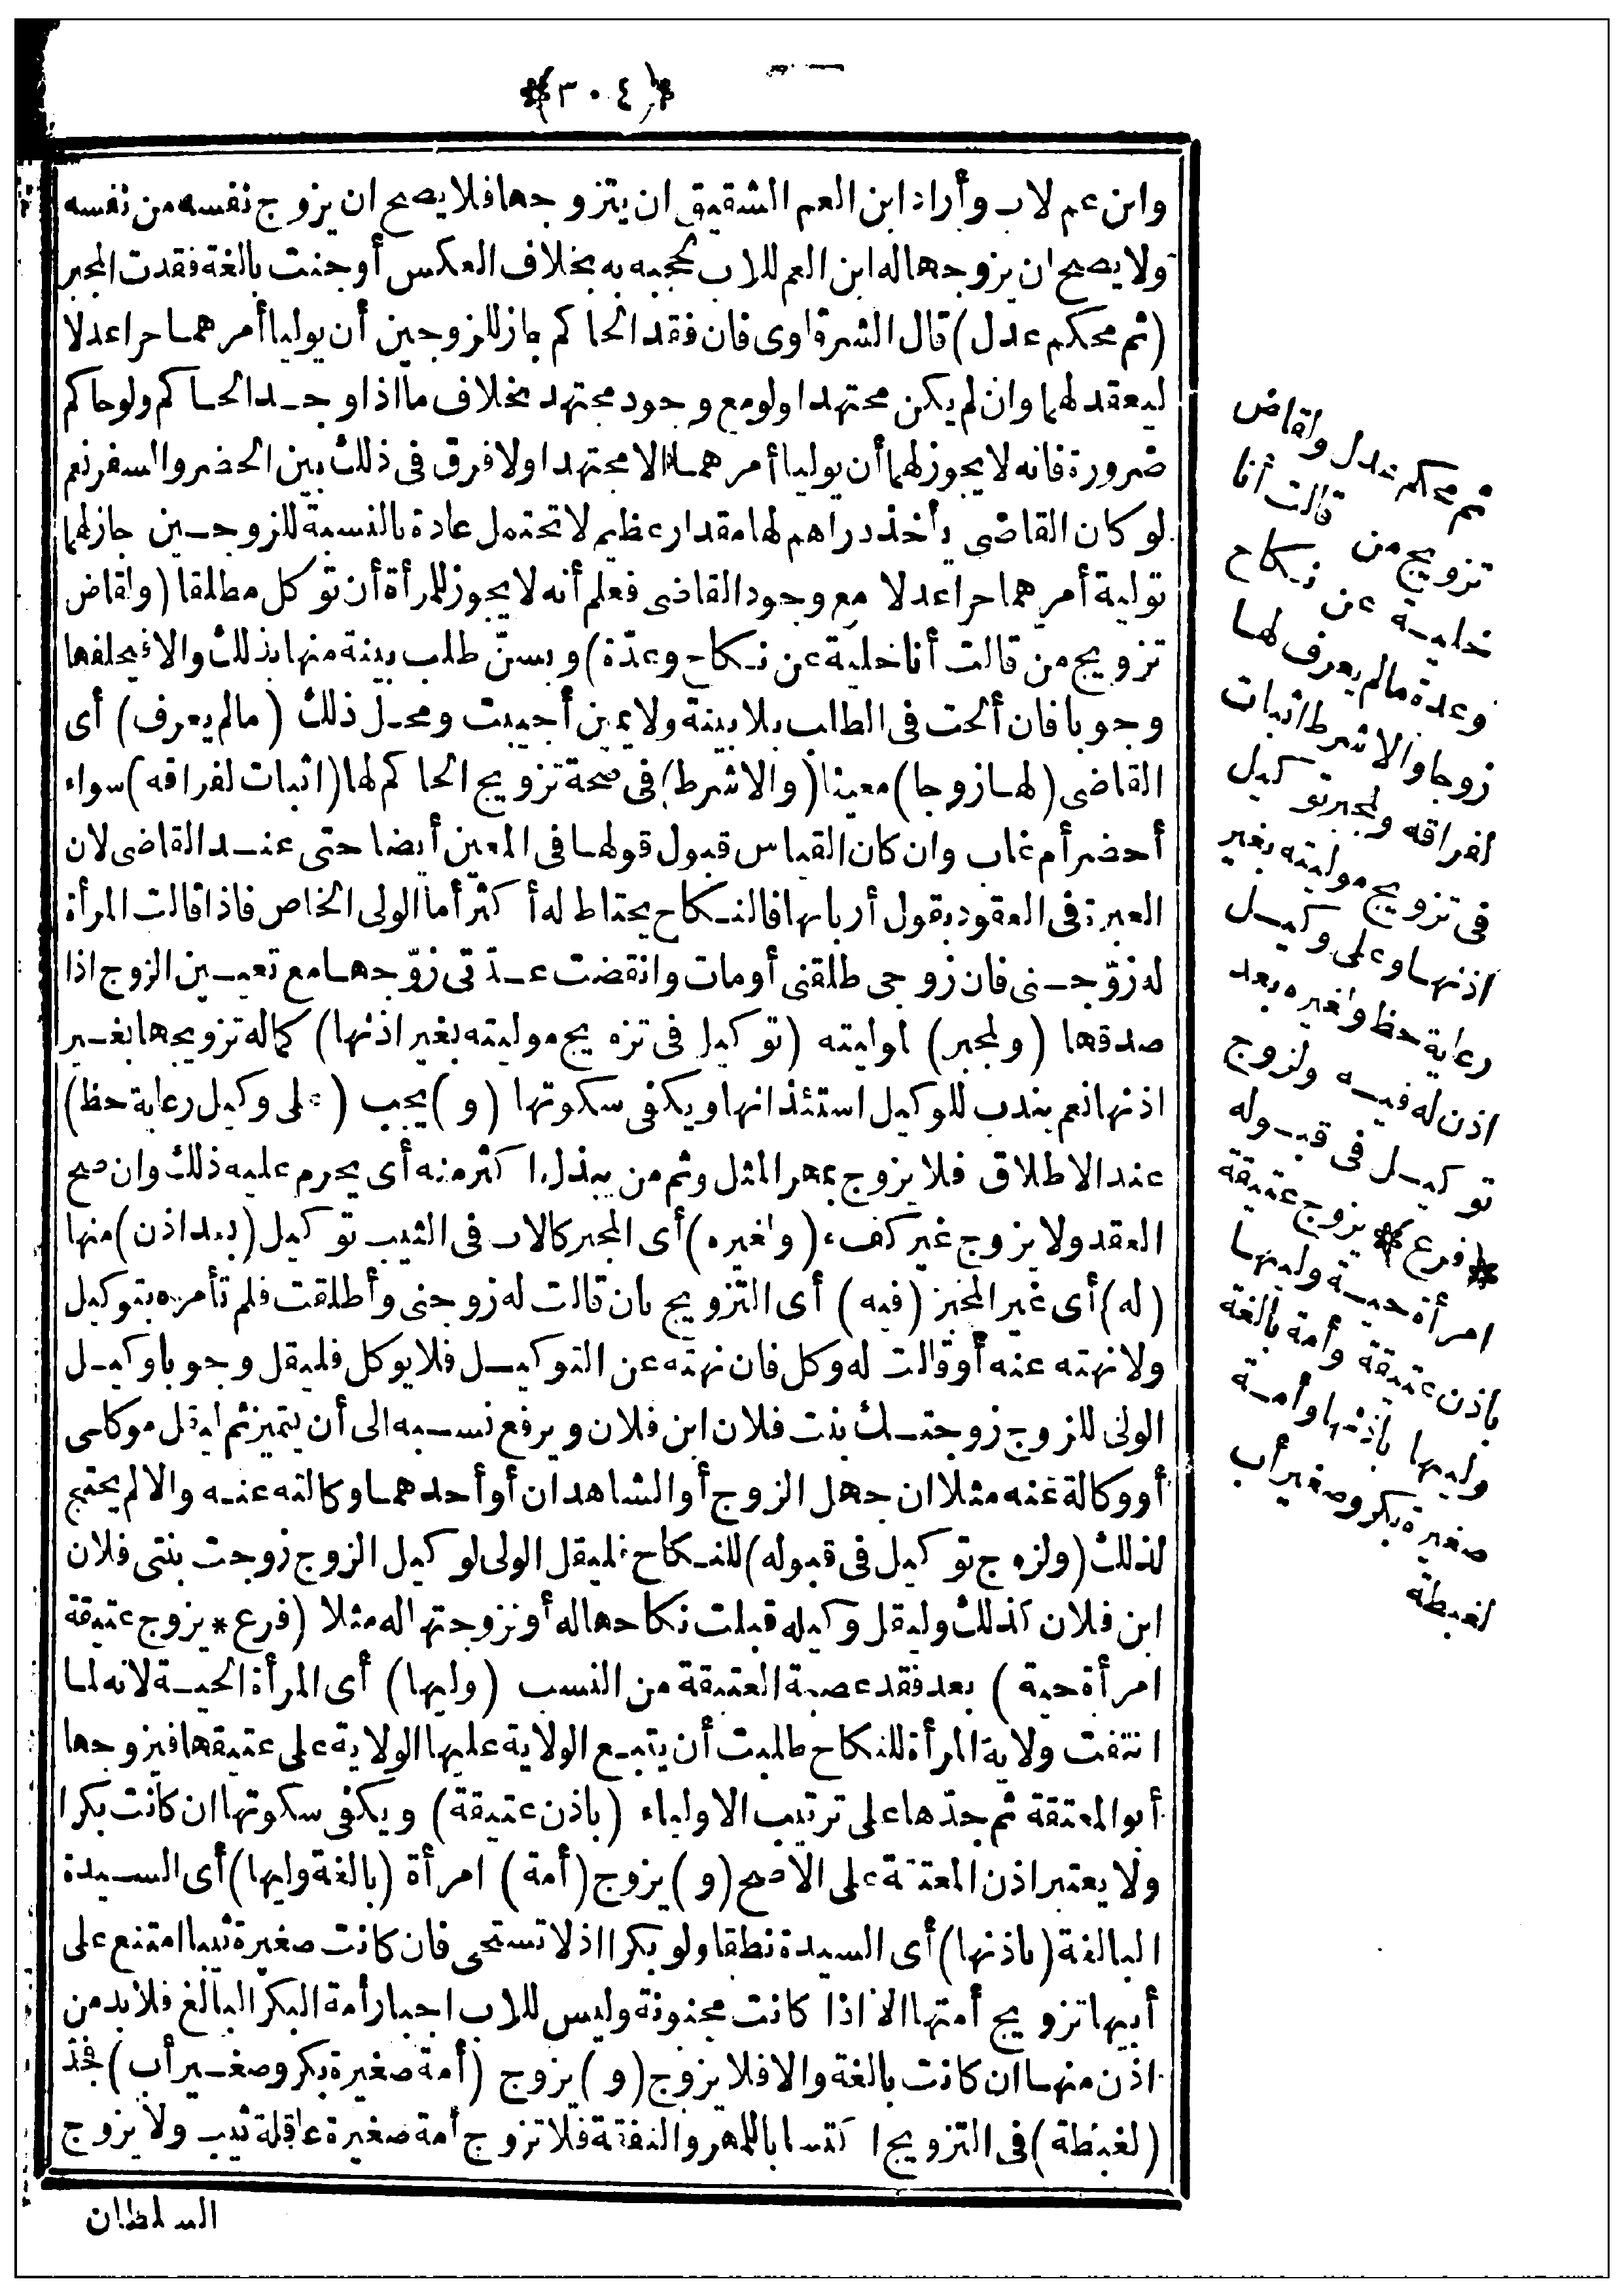 ﴿٣٠٤﴾
وابن عم لاب وأراد ابن العم الشقيق ان يتزوجها فلا يصح ان يزوج نفسه من نفسه
ولا يصح ان يزوجها له ابن العم للاب لحجبه به بخلاف العكس أو جنت بالغة فقدت المجبر
(ثم محكم عدل) قال الشرقاوى فان فقد الحاكم جاز للزوجين أن يوليا أمرهما حرا عدلا
ليعقد لهما وان لم يكن مجتهدا ولو مع وجود مجتهد بخلاف ما اذا وجد الحاكم ولو حاكم
ضرورة فانه لا يجوز لهما أن يوليا أمرهما الا مجتهدا ولا فرق فى ذلك بين الحضر والسفر نعم
لو كان القاضى يأخذ دراهم لها مقدار عظيم لا تحتمل عادة بالنسبة للزوجين جاز لهما
تولية أمرهما حرا عدلا مع وجود القاضى فعلم أنه لا يجوز للمرأة أن توكل مطلقا (ولقاض
تزويج من قالت أنا خلية عن نكاح وعدّة) ويسنّ طلب بينة منها بذلك والا فيحلفها
وجوبا فان ألحت فى الطلب بلا بينة ولا يمين أجيبت ومحل ذلك (مالم يعرف) أى
القاضى (لها زوجا) معينا (والا شرط) فى صحة تزويج الحاكم لها (اثبات لفراقه) سواء
أحضر أم غاب وان كان القياس قبول قولها فى المعين أيضا حتى عند القاضى لان
العبرة فى العقود بقول أربابها فالنكاح يحتاط له أكثر أما الولى الخاص فاذا قالت المرأة
له زوّجنى فان زوجى طلقنى أو مات وانقضت عدّتى زوّجها مع تعيين الزوج اذا
صدقها (ولمجبر) لوليته (توكيل فى تزويج موليته بغير اذنها) كما له تزويجها بغير
اذنها نعم يندب للوكيل استئذانها ويكفى سكوتها (و) يجب (على وكيل رعاية حظ)
عند الاطلاق فلا يزوج بمهر المثل وثم من يبذل أكثر منه أى يحرم عليه ذلك وان صح
العقد ولا يزوج غير كفء (ولغيره) أى المجبر كالاب فى الثيب توكيل (بعد اذن) منها
(له) أى غير المجبر (فيه) أى التزويج بان قالت له زوجنى وأطلقت فلم تأمره بتوكيل
ولا نهته عنه أو قالت له وكل فان نهته عن التوكيل فلا يوكل فليقل وجوبا وكيل
الولى للزوج زوجتك بنت فلان ابن فلان ويرفع نسبه الى أن يتميز ثم ليقل موكلى
أو وكالة عنه مثلا ان جهل الزوج أو الشاهدان أو أحدهما وكالته عنه والا لم يحتج
لذلك (ولزوج توكيل فى قبوله) للنكاح فليقل الولى لوكيل الزوج زوجت بنتى فلان
ابن فلان كذلك وليقل وكيله قبلت نكاحها له أو تزوجتها له مثلا (فرع * يزوج عتيقة
امرأة حية) بعد فقد عصبة العتيقة من النسب (وليها) أى المرأة الحية لانه لما
انتفت ولاية المرأة للنكاح طلبت أن يتبع الولاية عليها الولاية على عتيقها فيزوجها
أبو المعتقة ثم جدّها على ترتيب الاولياء (باذن عتيقة) ويكفى سكوتها ان كانت بكرا
ولا يعتبر اذن المعتقة على الاصح (و) يزوج (أمة) امرأة (بالغة وليها) أى السيدة
البالغة (باذنها) أى السيدة نطقا ولو بكرا اذ لا تستحى فان كانت صغيرة ثيبا امتنع على
أبيها تزويج أمتها الا اذا كانت مجنونة وليس للاب اجبار أمة البكر البالغ فلا بد من
اذن منها ان كانت بالغة والا فلا يزوج (و) يزوج (أمة صغيرة بكر وصغير أب) فجد
(لغبطة) فى التزويج اكتسابا للمهر والنفقة فلا تزوج أمة صغيرة عاقلة ثيب ولا يزوج
السلطان
ثم محكم عدل ولقاض
تزويج من قالت أنا
خلية عن نكاح
وعدة مالم يعرف لها
زوجا والا شرط اثبات
لفراقه ولمجبر توكيل
فى تزويج موليته بغير
اذنها وعلى وكيل
رعاية حظ ولغيره بعد
اذن له فيه ولزوج
توكيل فى قبوله
* فرع * يزوج عتيقة
امرأة حية وليها
باذن عتيقة وأمة بالغة
وليها باذنها وأمة
صغيرة بكر وصغير أب
لغبطة